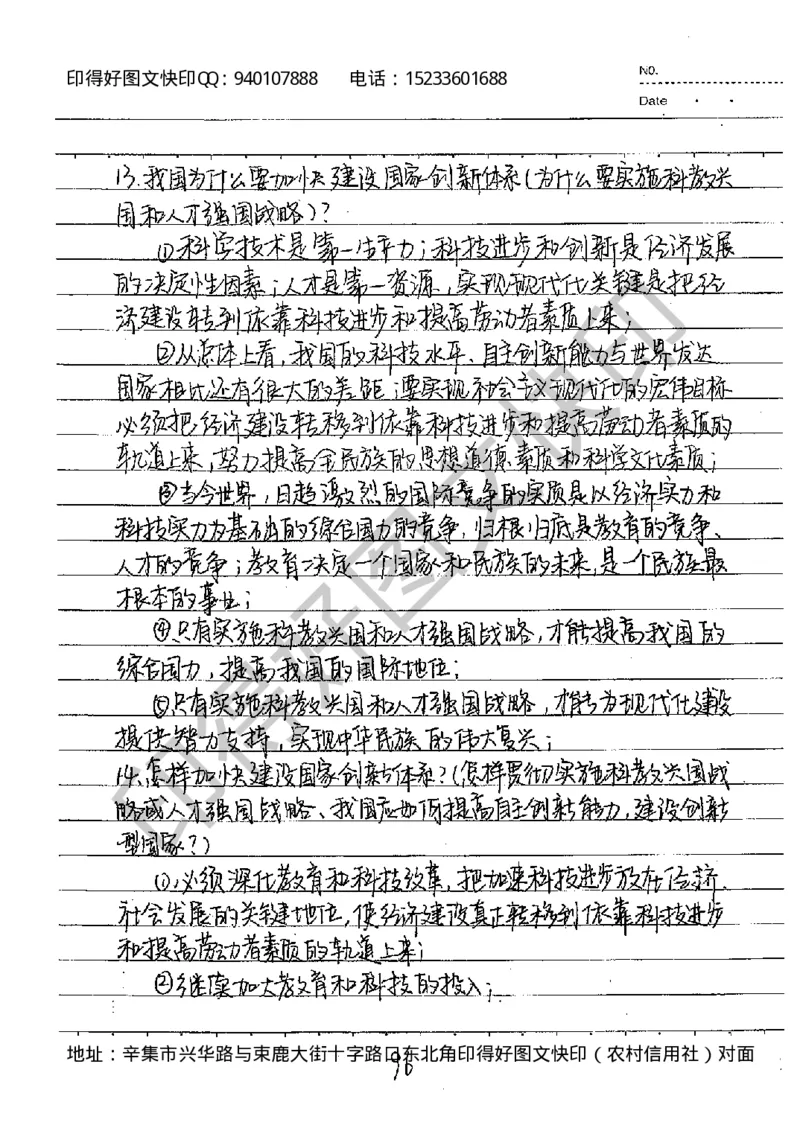 印得好图文快印QQ：940107888 电话：15233601688
NO.
Date
13.我国为什么要加快建设国家创新体系(为什么要实施科教兴
国和人才强国战略)？
①科学技术是第一生产力；科技进步和创新是经济发展
的决定性因素；人才是第一资源，实现现代化关键是把经
济建设转到依靠科技进步和提高劳动者素质上来；
②从总体上看，我国的科技水平、自主创新能力与世界发达
国家相比还有很大的差距，要实现社会主义现代化的宏伟目标
必须把经济建设转移到依靠科技进步和提高劳动者素质的
轨道上来，努力提高全民族的思想道德素质和科学文化素质；
③当今世界，日趋激烈的国际竞争的实质是以经济实力和
科技实力为基础的综合国力的竞争，归根归底是教育的竞争、
人才的竞争；教育决定一个国家和民族的未来，是一个民族最
根本的事业；
④只有实施科教兴国和人才强国战略，才能提高我国的
综合国力，提高我国的国际地位；
⑤只有实施科教兴国和人才强国战略，才能为现代化建设
提供智力支持，实现中华民族的伟大复兴；
14.怎样加快建设国家创新体系？(怎样贯彻实施科教兴国战
略或人才强国战略、我国应如何提高自主创新能力，建设创新
型国家？)
①必须深化教育和科技改革，把加速科技进步放在经济、
社会发展的关键地位，使经济建设真正转移到依靠科技进步
和提高劳动者素质的轨道上来；
②继续加大教育和科技的投入；
地址：辛集市兴华路与束鹿大街十字路口东北角印得好图文快印（农村信用社）对面
96
印得好图文快印